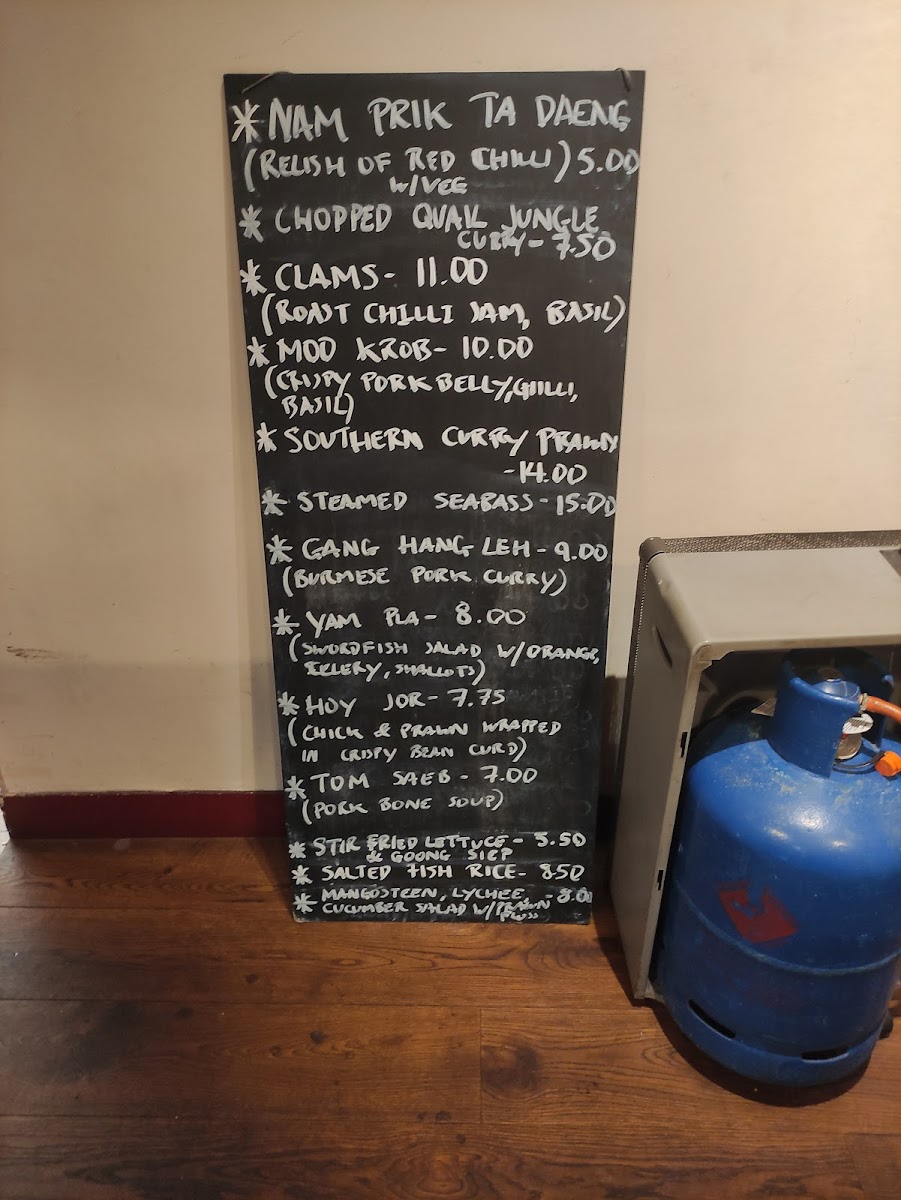 * NAM PRIK TA DAENG
(RELISH OF RED CHILLI) 5.00
W/VEG
* CHOPPED QUAIL JUNGLE
CURRY - 7.50
* CLAMS - 11.00
(ROAST CHILLI JAM, BASIL)
* MOO KROB - 10.00
(CRISPY PORK BELLY, CHILLI,
BASIL)
* SOUTHERN CURRY PRAWN
- 14.00
* STEAMED SEABASS - 15.00
* GANG HANG LEH - 9.00
(BURMESE PORK CURRY)
* YAM PLA - 8.00
(SWORDFISH SALAD W/ORANGE,
CELERY, SHALLOTS)
* HOY JOR - 7.75
(CHICK & PRAWN WRAPPED
IN CRISPY BEAN CURD)
* TOM SAEB - 7.00
(PORK BONE SOUP)
* STIR FRIED LETTUCE - 5.50
& GOONG SIEP
* SALTED FISH RICE - 8.50
* MANGOSTEEN, LYCHEE 8.00
CUCUMBER SALAD W/PRAWN
FLOSS